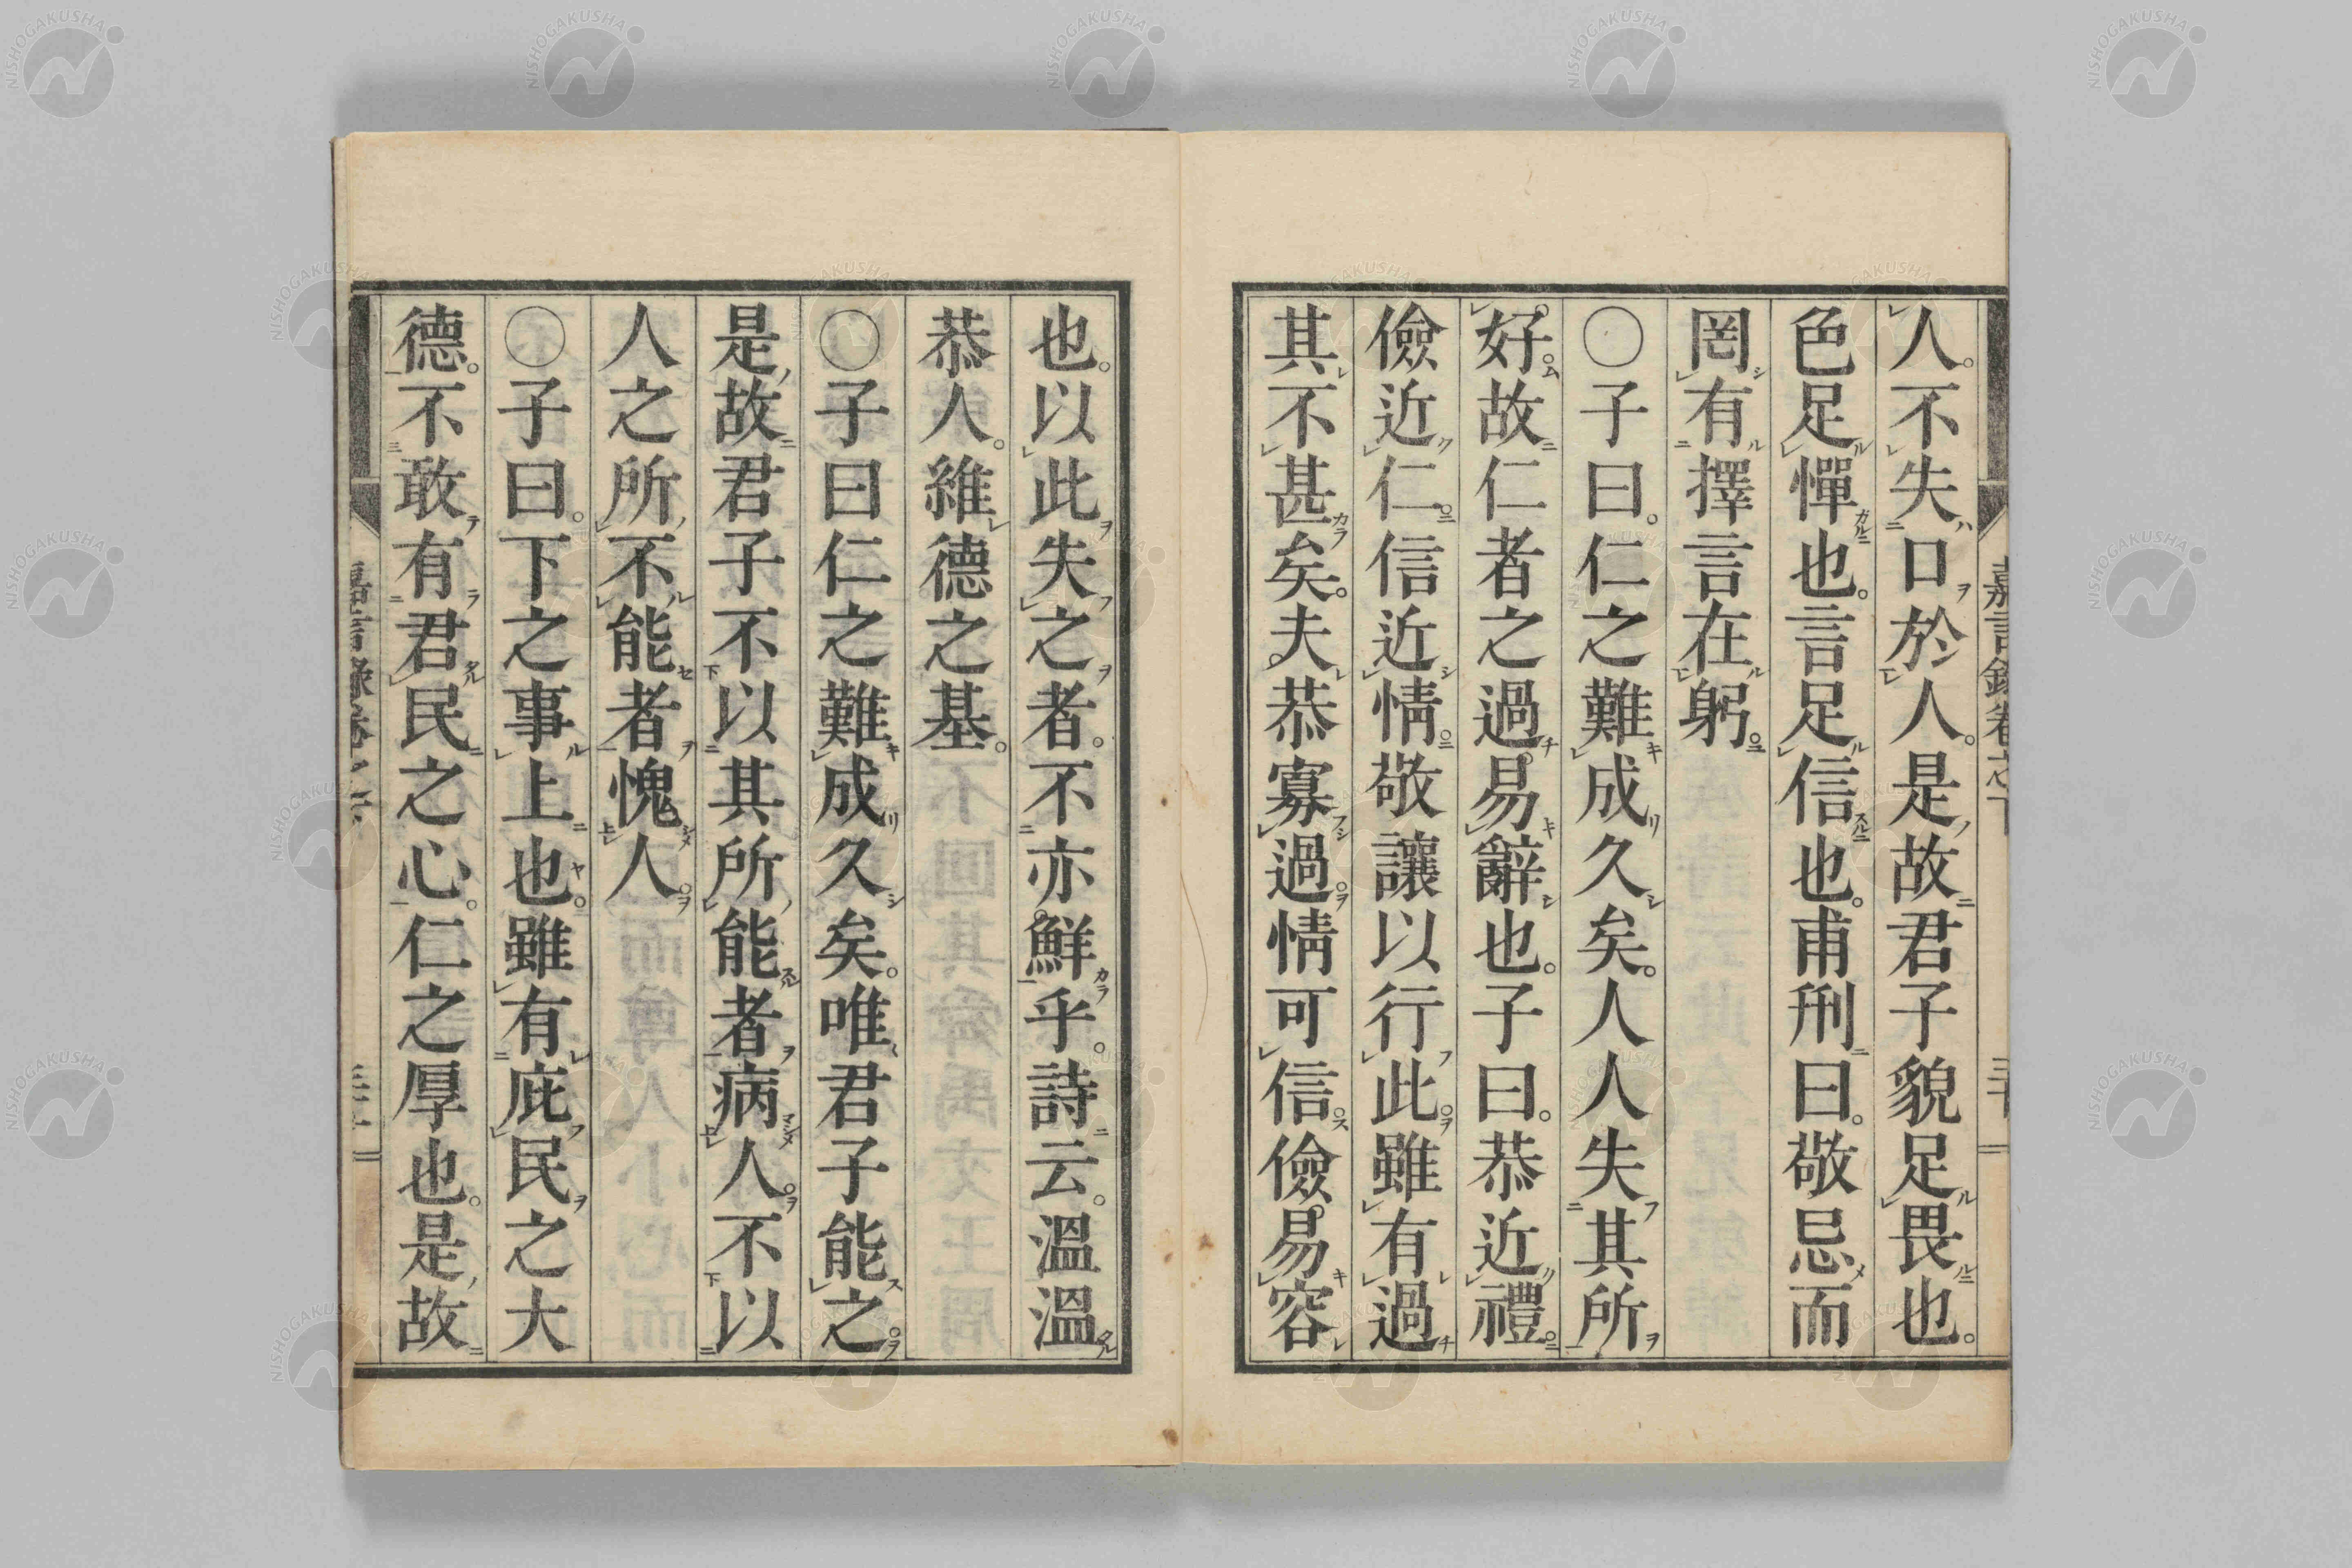 人不失口於人是故君子貌足畏也
色足憚也言足信也甫刑曰敬忌而
罔有擇言在躬
〇子曰仁之難成久矣人人失其所
好故仁者之過易辭也子曰恭近禮
儉近仁信近情敬讓以行此雖有過
其不甚矣夫恭寡過情可信儉易容
也以此失之者不亦鮮乎詩云溫溫
恭人維德之基
〇子曰仁之難成久矣唯君子能之
是故君子不以其所能者病人不以
人之所不能者愧人
〇子曰下之事上也雖有庇民之大
德不敢有君民之心仁之厚也是故
NISHOGAKUSHA